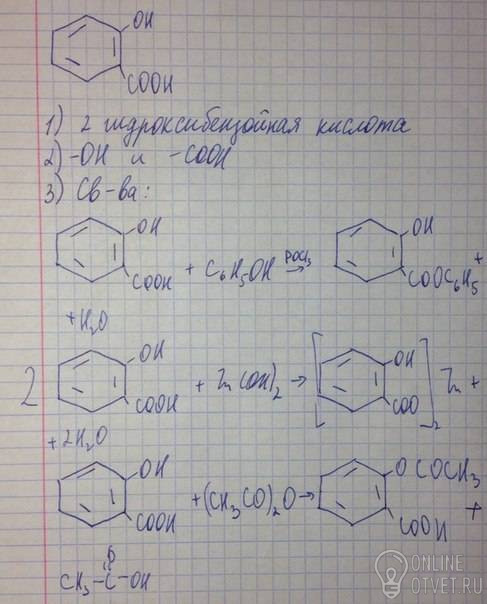 OH
COOH
1) 2 гидроксибензойная кислота
2) -OH и -COOH
3) Св-ва:
OH OH
COOH + C₆H₅OH POCl₃→ COOC₆H₅ +
+ H₂O
OH OH
2 COOH + Zn(OH)₂ → [ COO ]₂ Zn +
+ 2H₂O
OH OCOCH₃
COOH + (CH₃CO)₂O → COOH +
O
CH₃-C-OH
ONLINE
OTVET.RU